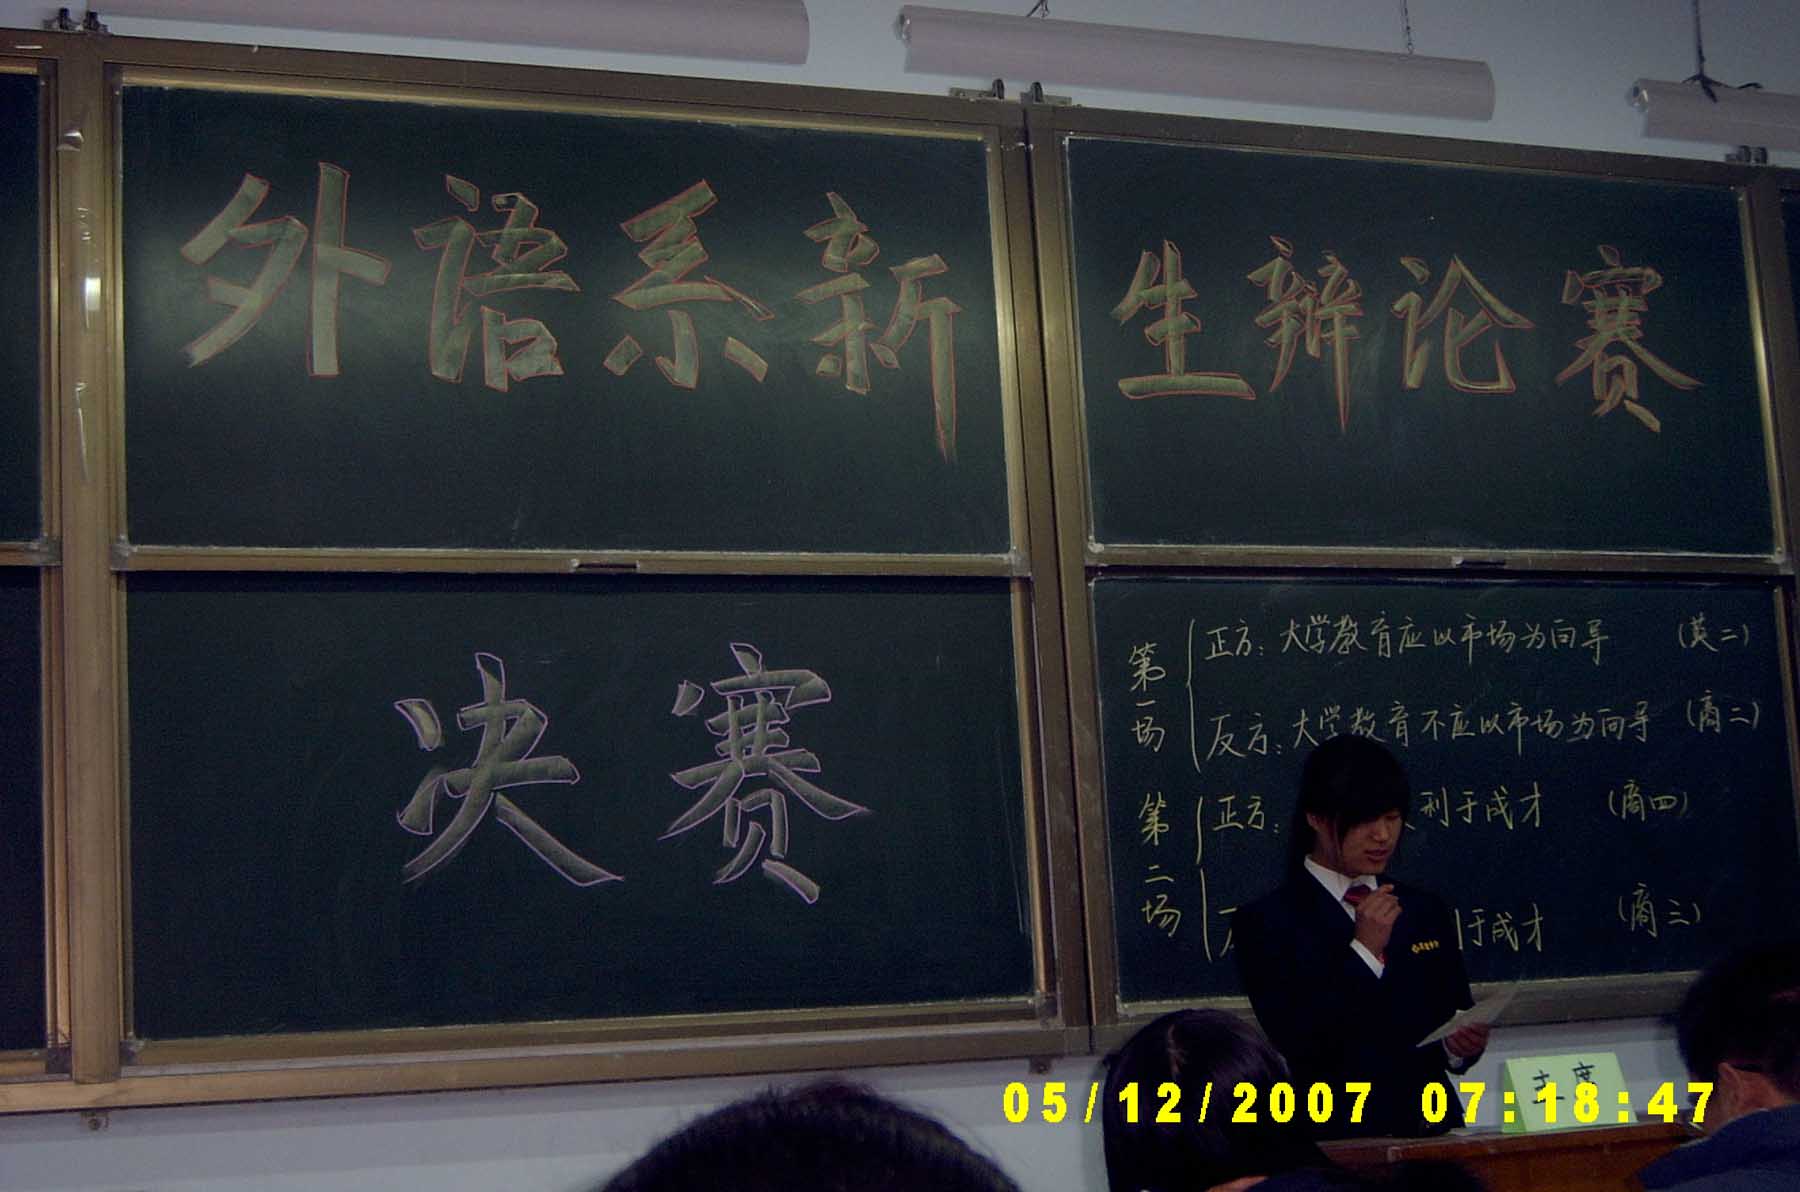 外语系新生辩论赛
决赛
第一场
正方：大学教育应以市场为向导 (英二)
反方：大学教育不应以市场为向导 (商二)
第二场
正方： 利于成才 (商四)
于成才 (商三)
主席
05/12/2007 07:18:47